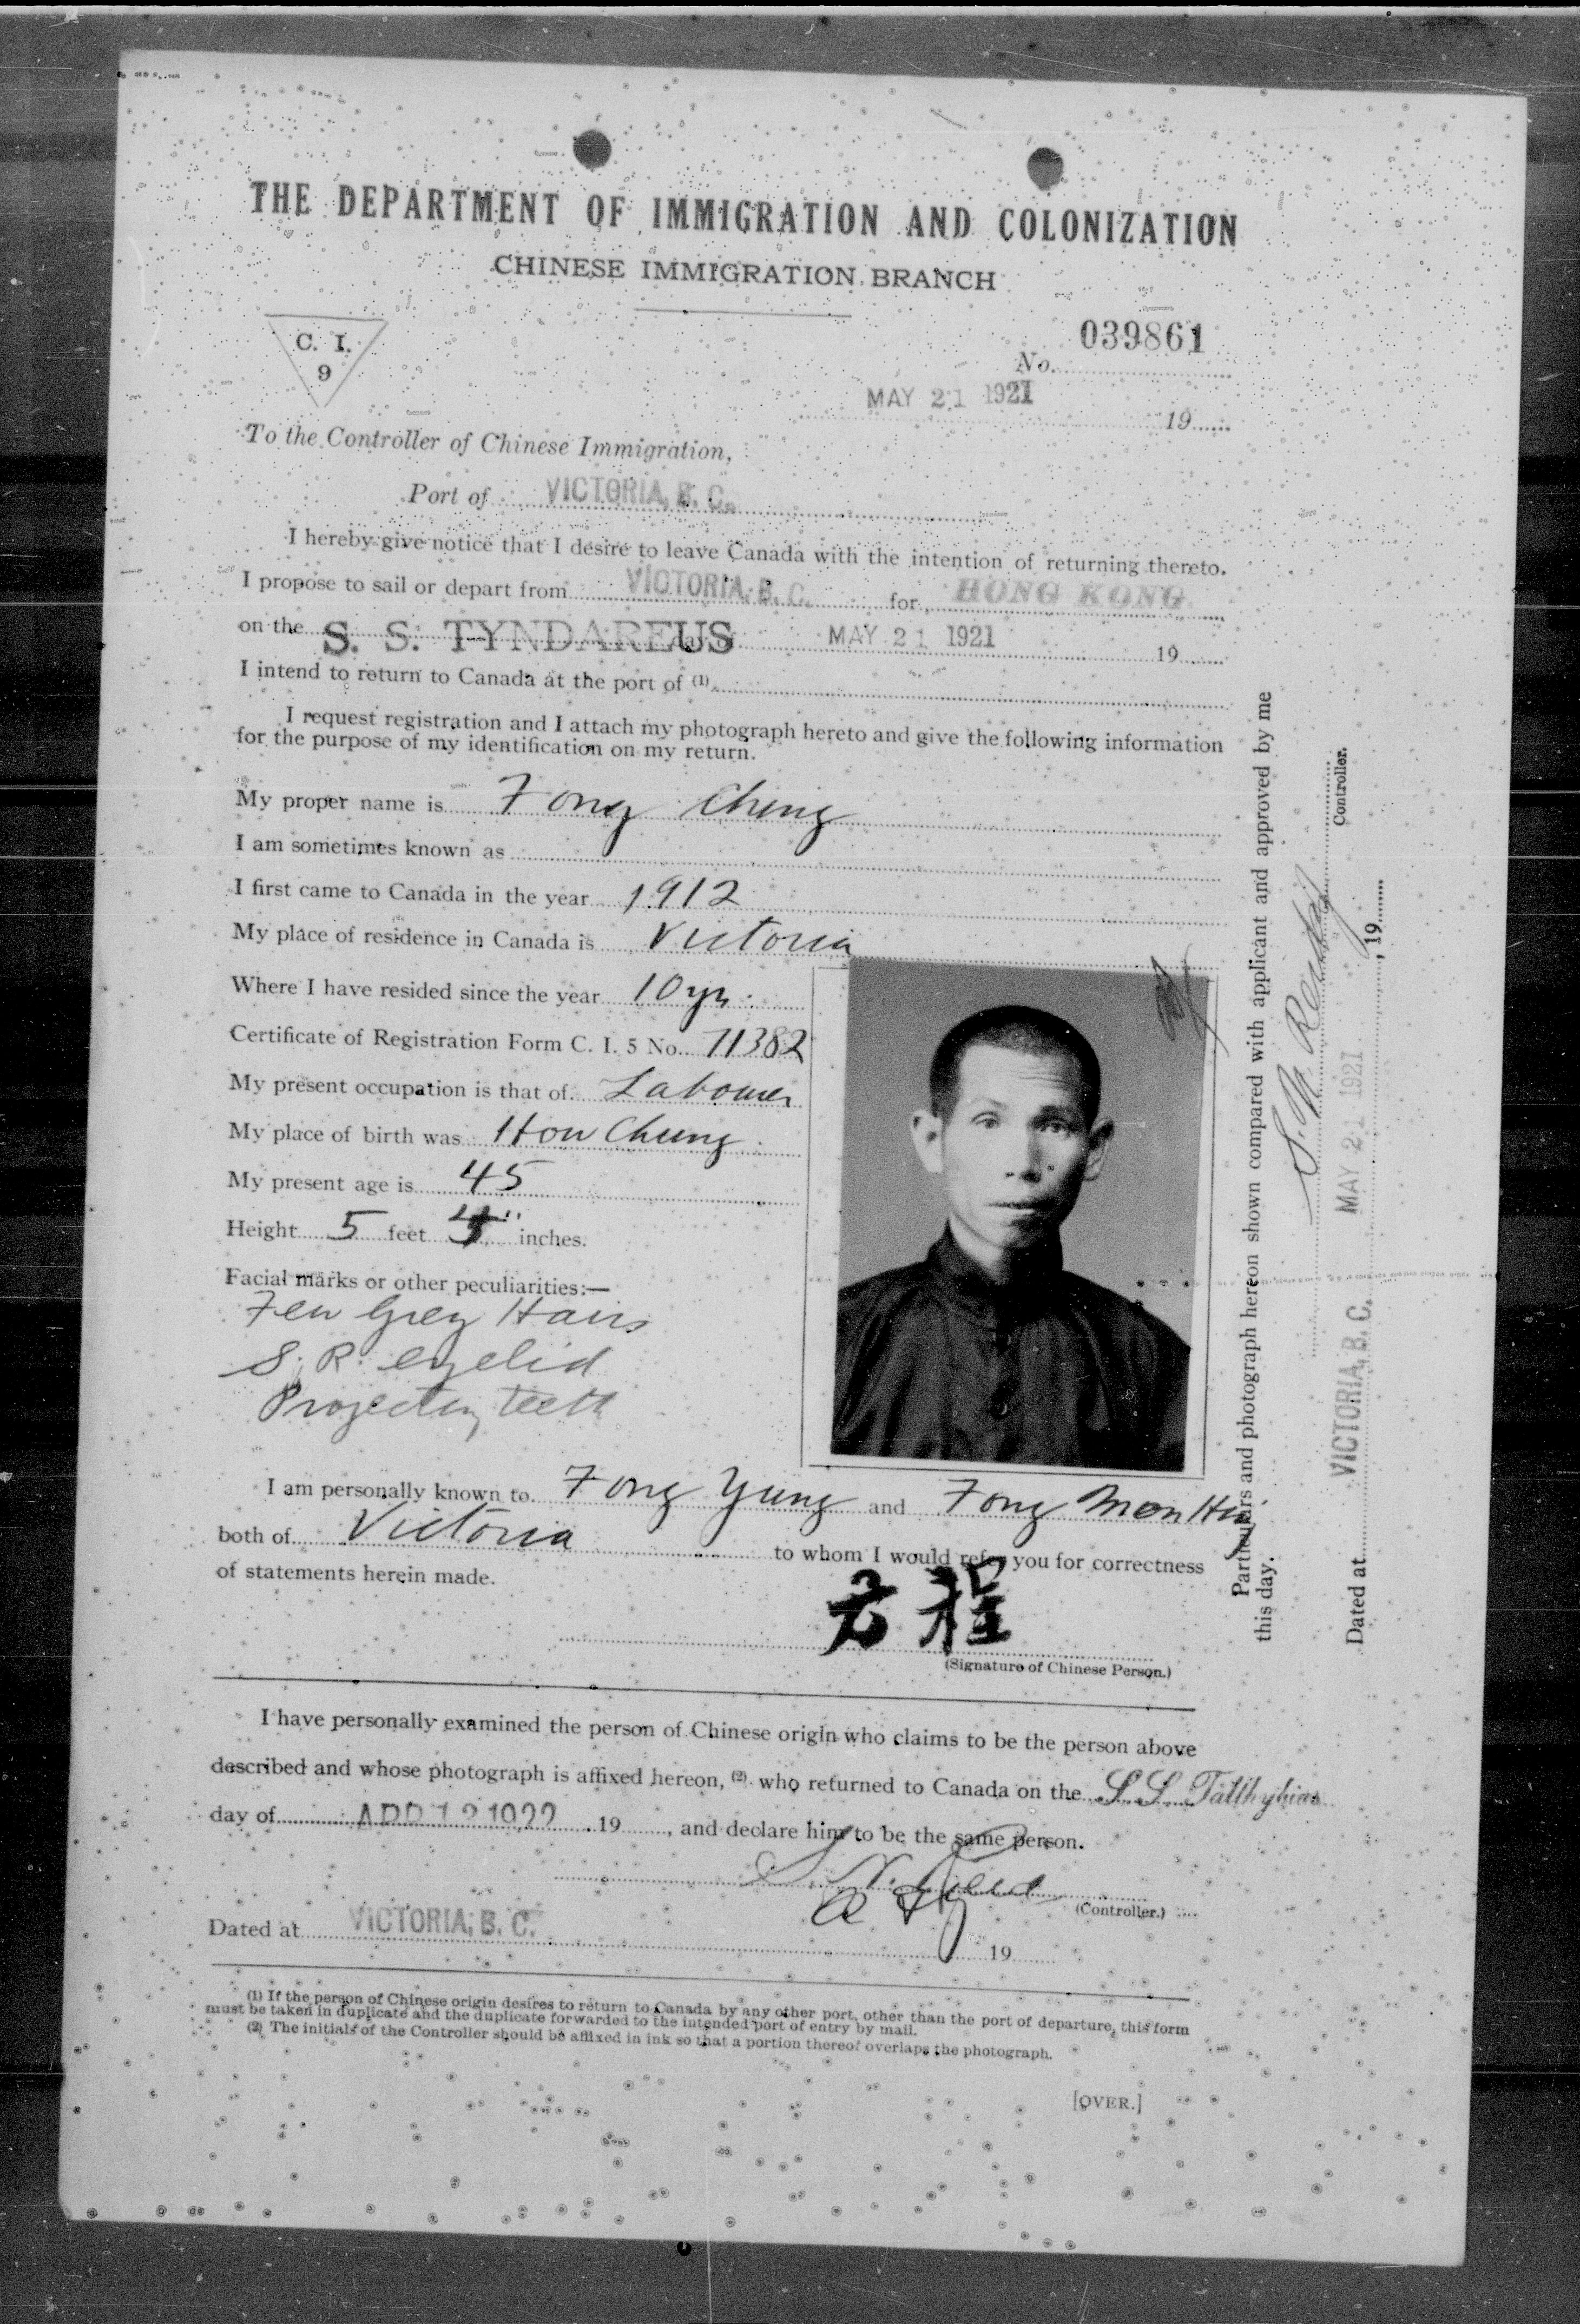 THE DEPARTMENT OF IMMIGRATION AND COLONIZATION
CHINESE IMMIGRATION BRANCH
C. I.
9
039861
No.
MAY 21 1921
19
To the Controller of Chinese Immigration,
Port of VICTORIA, B. C.
I hereby give notice that I desire to leave Canada with the intention of returning thereto.
I propose to sail or depart from VICTORIA, B. C. for HONG KONG
on the S. S. TYNDAREUS MAY 21 1921 19
I intend to return to Canada at the port of (1)
I request registration and I attach my photograph hereto and give the following information
for the purpose of my identification on my return.
My proper name is Fong Ching
I am sometimes known as
I first came to Canada in the year 1912
My place of residence in Canada is Victoria
Where I have resided since the year 10 yrs.
Certificate of Registration Form C. I. 5 No. 71382
My present occupation is that of Labourer
My place of birth was How Chung
My present age is 45
Height 5 feet 4" inches.
Facial marks or other peculiarities:—
Few Grey Hairs
S. R. eyelid
Projecting teeth
I am personally known to Fong Yung and Fong Mon
both of Victoria to whom I would refer you for correctness
of statements herein made.
程
(Signature of Chinese Person.)
I have personally examined the person of Chinese origin who claims to be the person above
described and whose photograph is affixed hereon, (2) who returned to Canada on the S.S. Talthybius
day of APR 12 1922 19, and declare him to be the same person.
(Controller.)
Dated at VICTORIA, B. C. 19
(1) If the person of Chinese origin desires to return to Canada by any other port, other than the port of departure, this form
must be taken in duplicate and the duplicate forwarded to the intended port of entry by mail.
(2) The initials of the Controller should be affixed in ink so that a portion thereof overlaps the photograph.
[OVER.]
Particulars and photograph hereon shown compared with applicant and approved by me
this day.
Controller.
Dated at VICTORIA, B. C. MAY 21 1921, 19